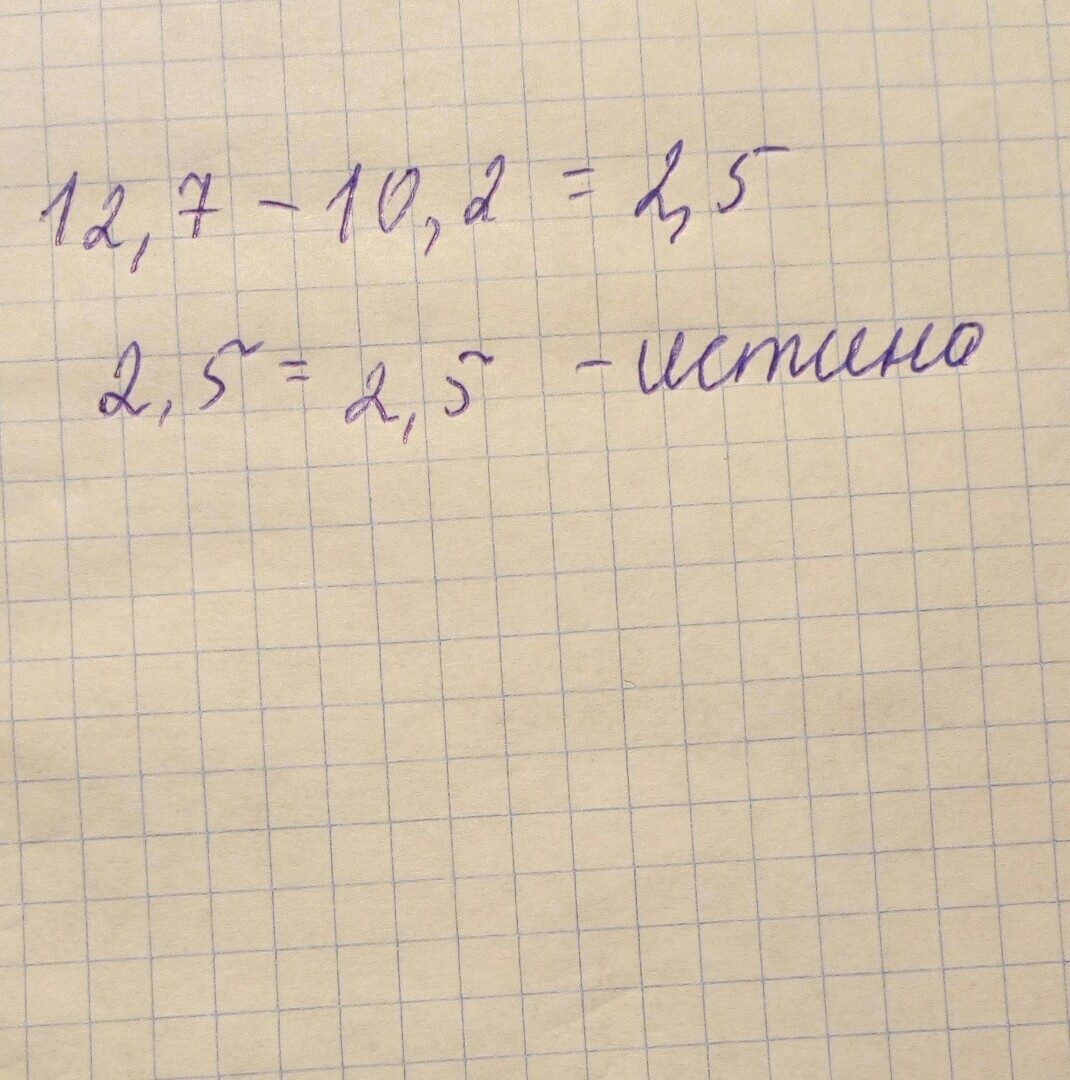 12,7 - 10,2 = 2,5
2,5 = 2,5 - истина